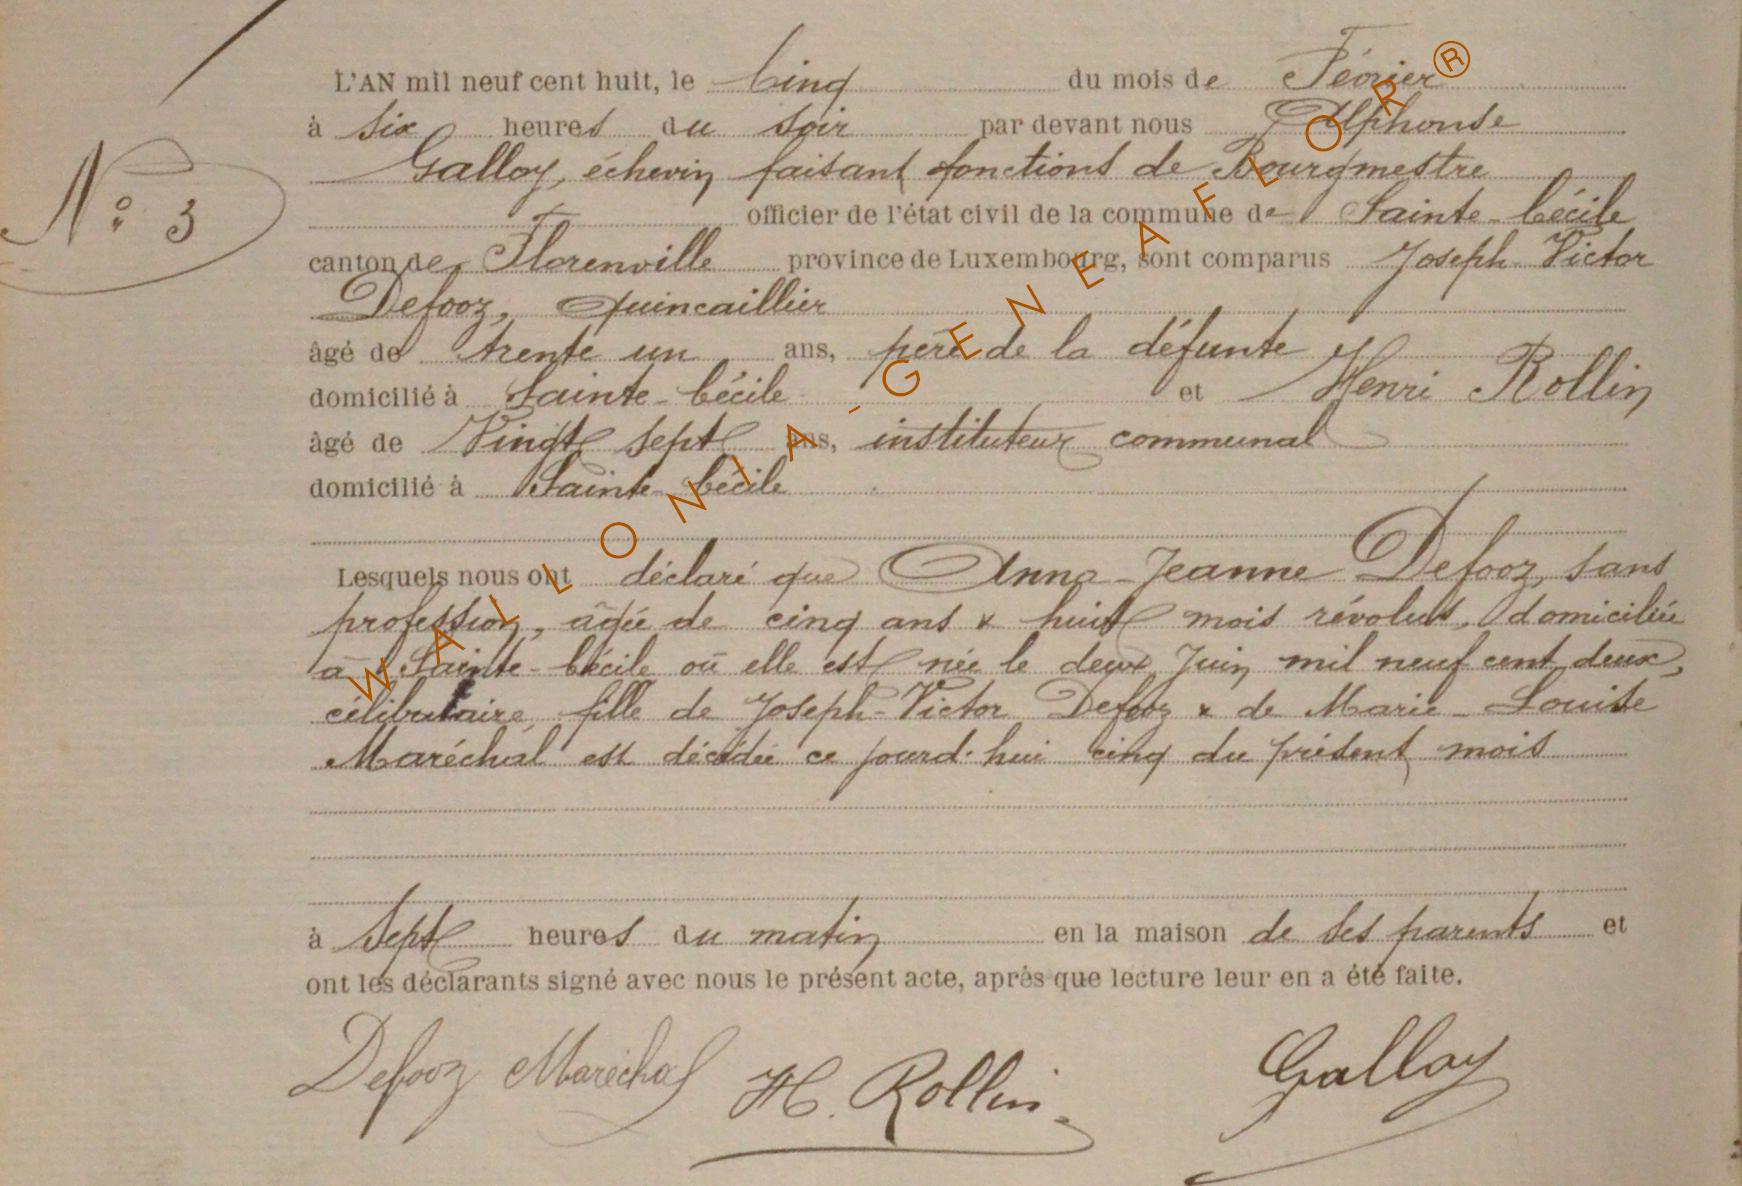 L'AN mil neuf cent huit, le Cinq du mois de Février
à six heures du soir par devant nous Alphonse
Galloy, échevin faisant fonctions de Bourgmestre
officier de l'état civil de la commune de Sainte-Cécile
N° 3
canton de Florenville province de Luxembourg, sont comparus Joseph Victor
Defooz, quincaillier
âgé de trente un ans, père de la défunte
domicilié à Sainte-Cécile et Henri Rollin
âgé de Vingt sept ans, instituteur communal
domicilié à Sainte-Cécile
Lesquels nous ont déclaré que Anna-Jeanne Defooz, sans
profession, âgée de cinq ans & huit mois révolus, domiciliée
à Sainte-Cécile où elle est née le deux Juin mil neuf cent deux,
célibataire, fille de Joseph-Victor Defooz & de Marie-Louise
Maréchal est décédée ce jourd'hui cinq du présent mois
à Sept heures du matin en la maison de ses parents et
ont les déclarants signé avec nous le présent acte, après que lecture leur en a été faite.
Defooz Maréchal H. Rollin. Galloy
WALLONIA-GENEAFLOR®